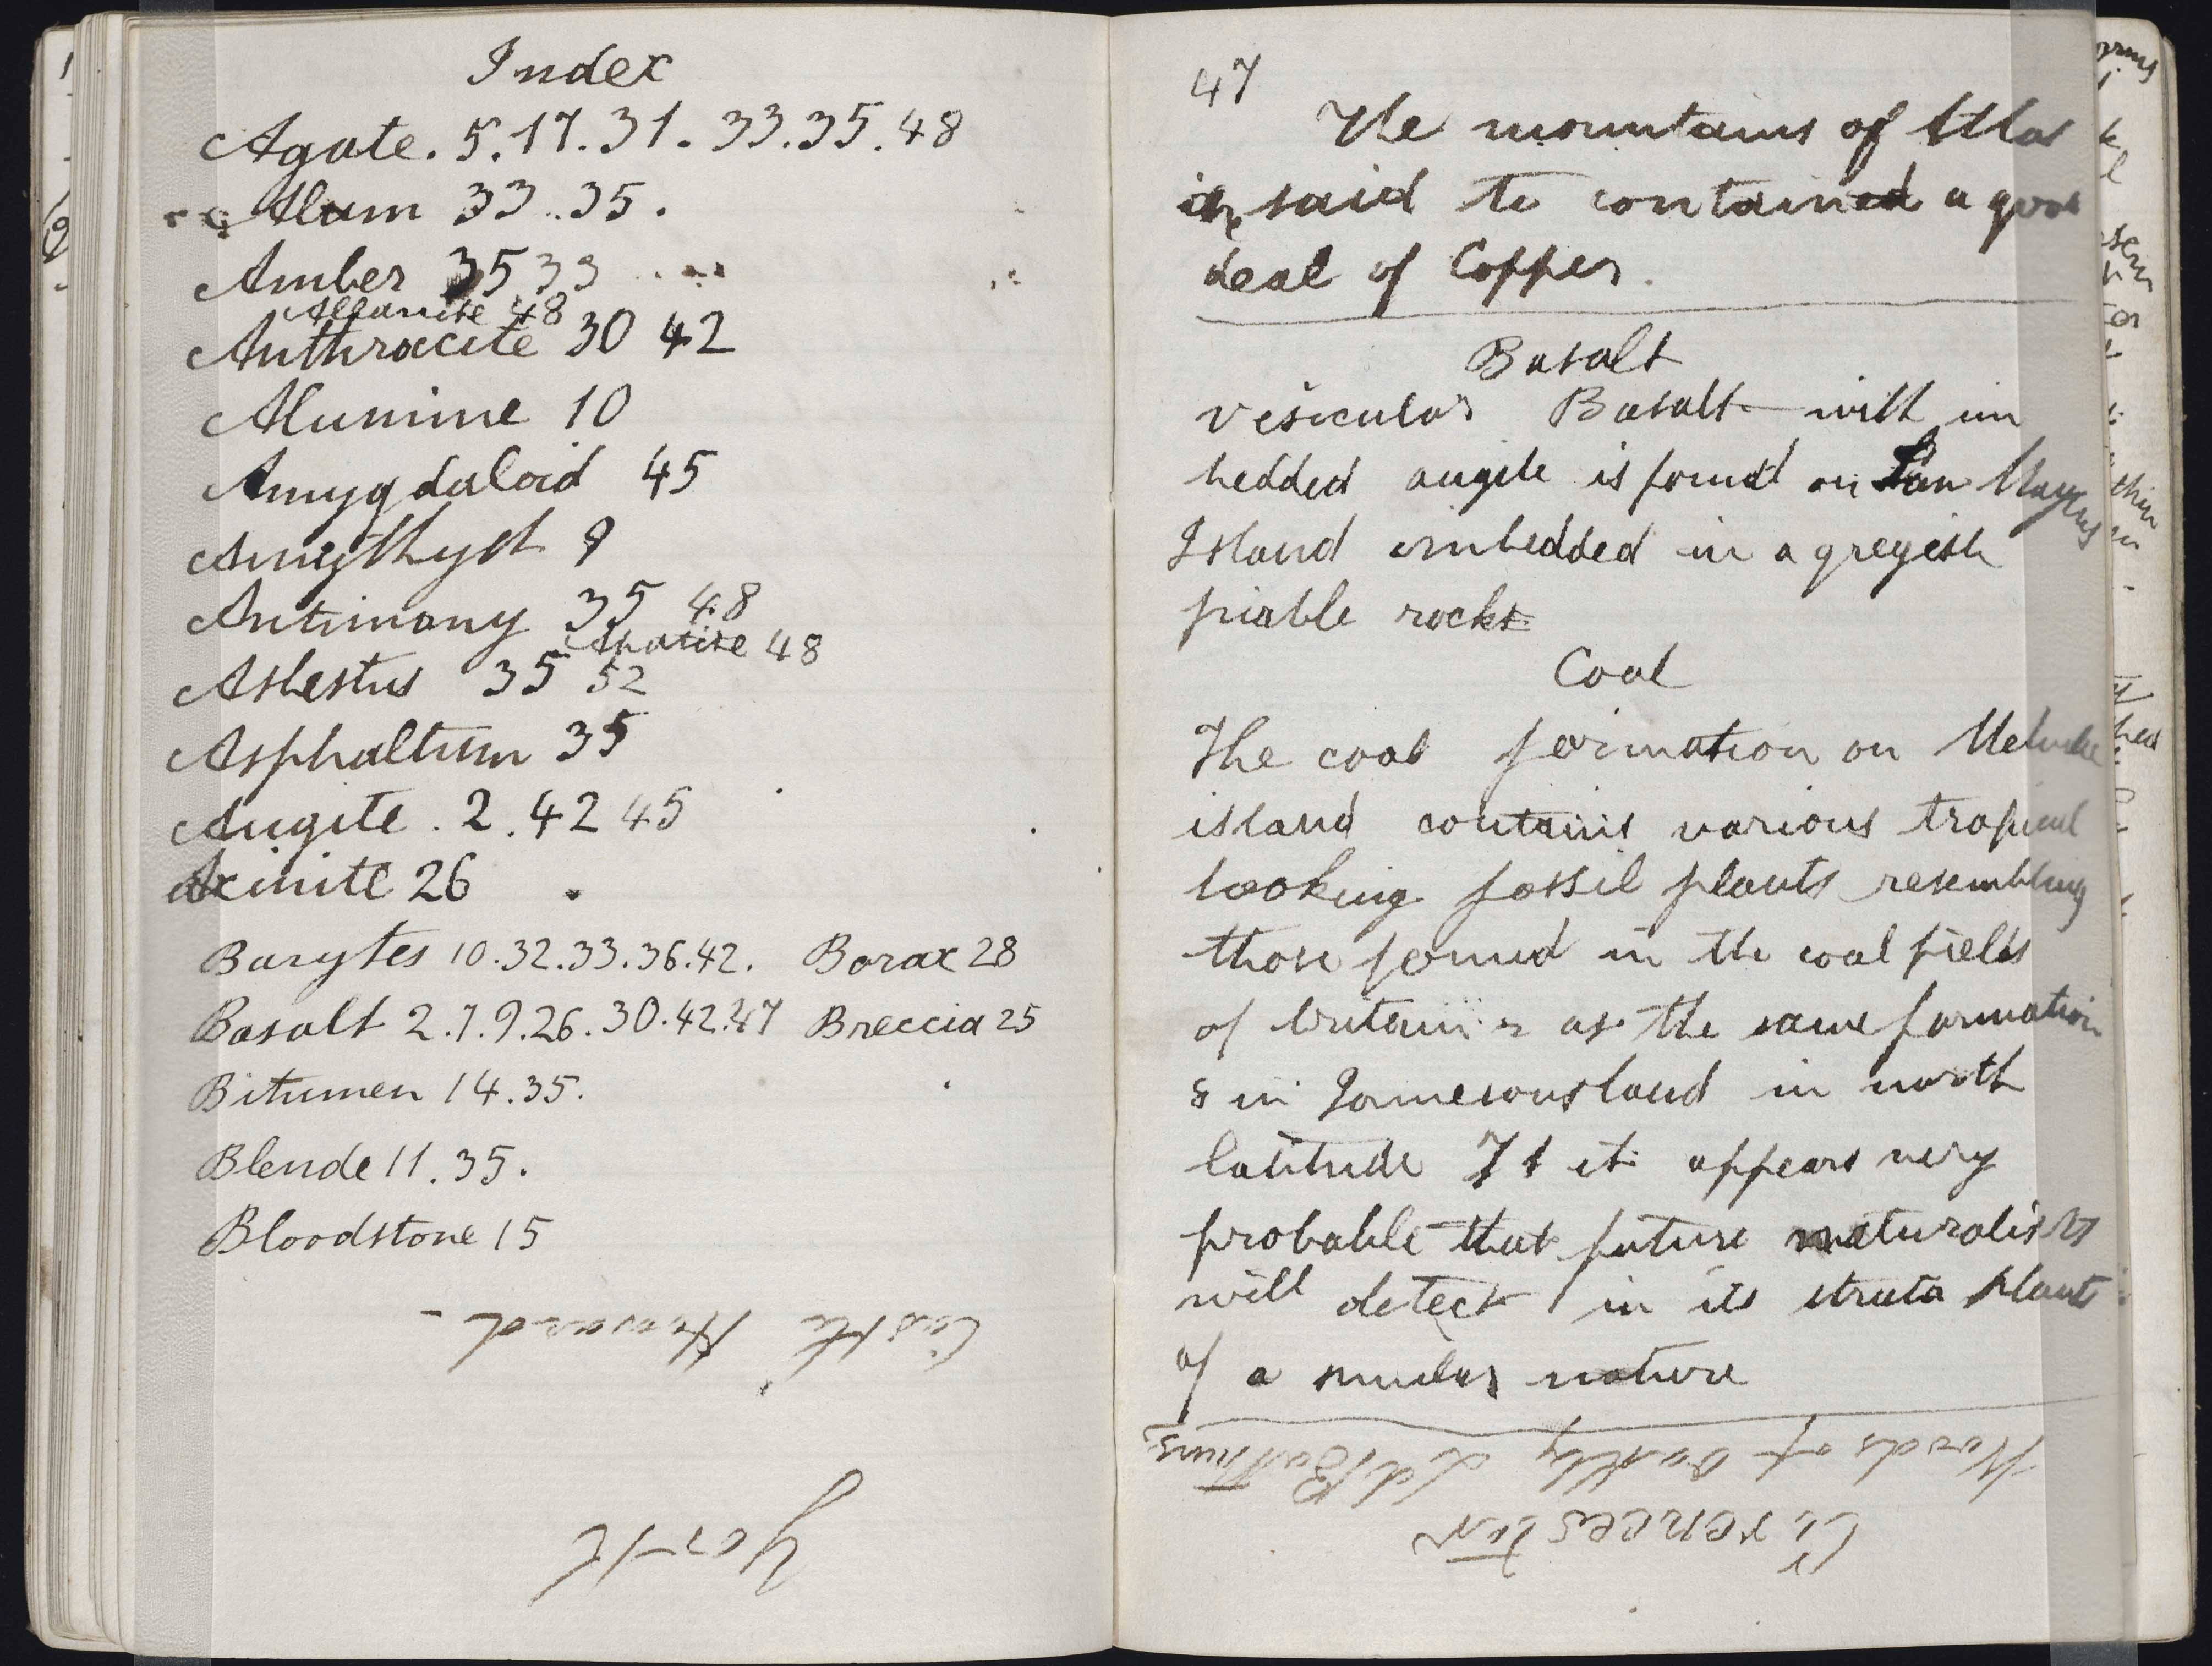 Index
Agate. 5. 17. 31. 33. 35. 48
Alum 33. 35.
Amber 35 33
Allanite 48
Anthracite 30 42
Alumine 10
Amygdaloid 45
Amythyst 9
Antimony 35 48
Apatite 48
Asbestus 35 52
Asphaltum 35
Augite. 2. 42 45
Axinite 26
Barytes 10. 32. 33. 36. 42. Borax 28
Basalt 2. 7. 9. 26. 30. 42. 47 Breccia 25
Bitumen 14. 35.
Blende 11. 35.
Bloodstone 15
Castle Howard -
York
47
The mountains of
said to contained a good
deal of Copper.
Basalt
vesicular Basalt with im
bedded augite is found on Jan Mayens
Island imbedded in a greyish
friable rock
Coal
The coal formation on Melville
island contains various tropical
looking fossil plants resembling
those found in the coal fields
of britain & as the same formation
in Jamesonsland in north
latitude 71 it appears very
probable that future naturalists
will detect in its strata plants
of a similar nature
Words of Ld Bathurs
Cirencester